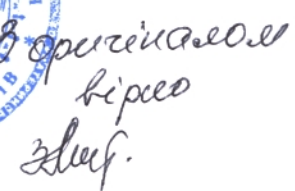 З оригіналом
вірно